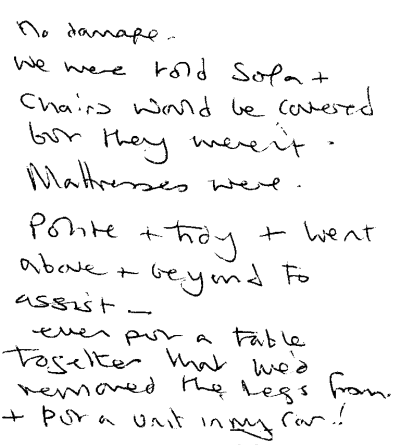 No damage.
We were told Sofa +
Chairs would be covered
but they weren't.
Mattresses were.
Polite + tidy + went
above + beyond to
assist –
even put a table
together that we'd
removed the legs from.
+ put a unit in my car!!